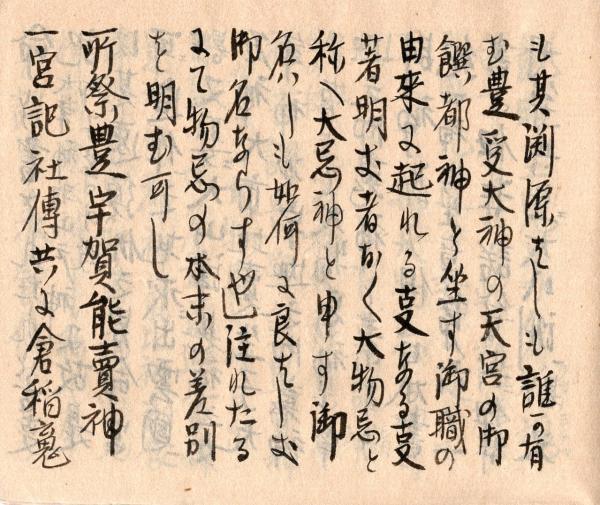 も其渕源をしも誰可有
む豊受大神の天宮の御
饌都神と坐す御職の
由来に起れる事ある事
著明き者なく大物忌と
称へ大忌神と申す御
名はしも如何に良をしむ
御名ならすや注れたる
にて物忌の本末の差別
を明む可し
一所祭豊宇賀能賣神
一宮記社傳共に倉稲䰟